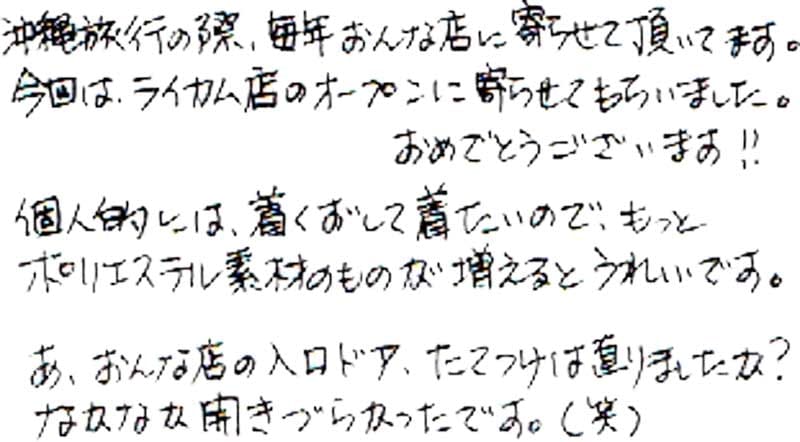 沖縄旅行の際、毎年おんな店に寄らせて頂いてます。
今回は、ライカム店のオープンに寄らせてもらいました。
おめでとうございます!!
個人的には、着くずして着たいので、もっと
ポリエステル素材のものが増えるとうれしいです。
あ、おんな店の入口ドア、たてつけは直りましたか?
なかなか開きづらかったです。(笑)